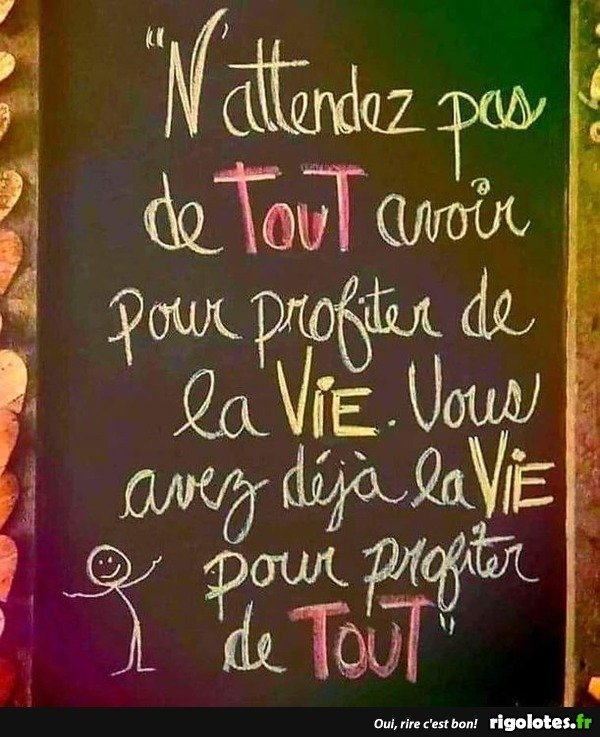 "N'attendez pas
de TOUT avoir
pour profiter de
la ViE. Vous
avez déjà la ViE
pour profiter
de TOUT"
Oui, rire c'est bon! rigolotes.fr